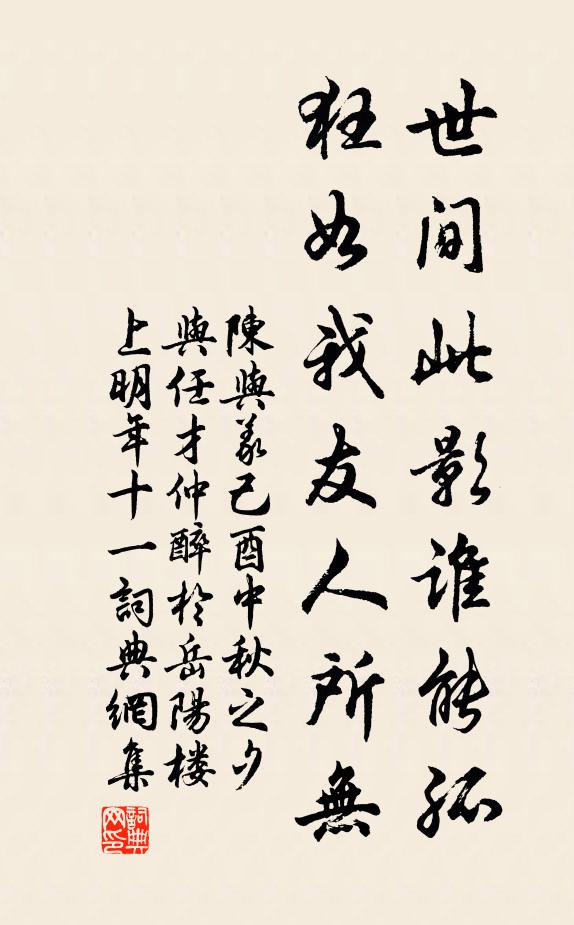 世間此影誰能孤
狂如我友人所無
陳與義己酉中秋之夕
與任才仲醉於岳陽楼
上明年十一詞典網集
詞典网印